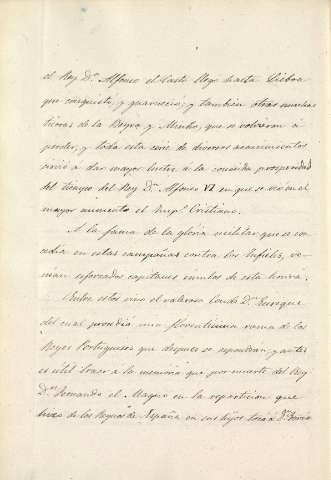 el Rey Dⁿ. Alfonso el Casto llego hasta Lisboa
que conquistó, y guarneció; y tambien otras muchas
tierras de la Beyra y Miño, que se volvieron á
perder, y toda esta serie de diversos acaecimientos
sirvió á dar mayor lustre á la conocida prosperidad
del tiempo del Rey Dⁿ. Alfonso VI en que se vió en el
mayor aumento el Impº. Cristiano.
A la fama de la gloria militar que se con
cedia en estas campañas contra los Infieles, ve-
nian esforzados capitanes emulos de esta honra.
Entre estos vino el valeroso Conde Dⁿ. Enrique
del cual procedia una florentisima rama de los
Reyes Portugueses que despues se espondran, y antes
es util traer á la memoria que por muerte del Rey
Dⁿ. Fernando el Magno en la reparticion que
hizo de los Reynos de España en sus hijos tocó á Dⁿ. Garcia